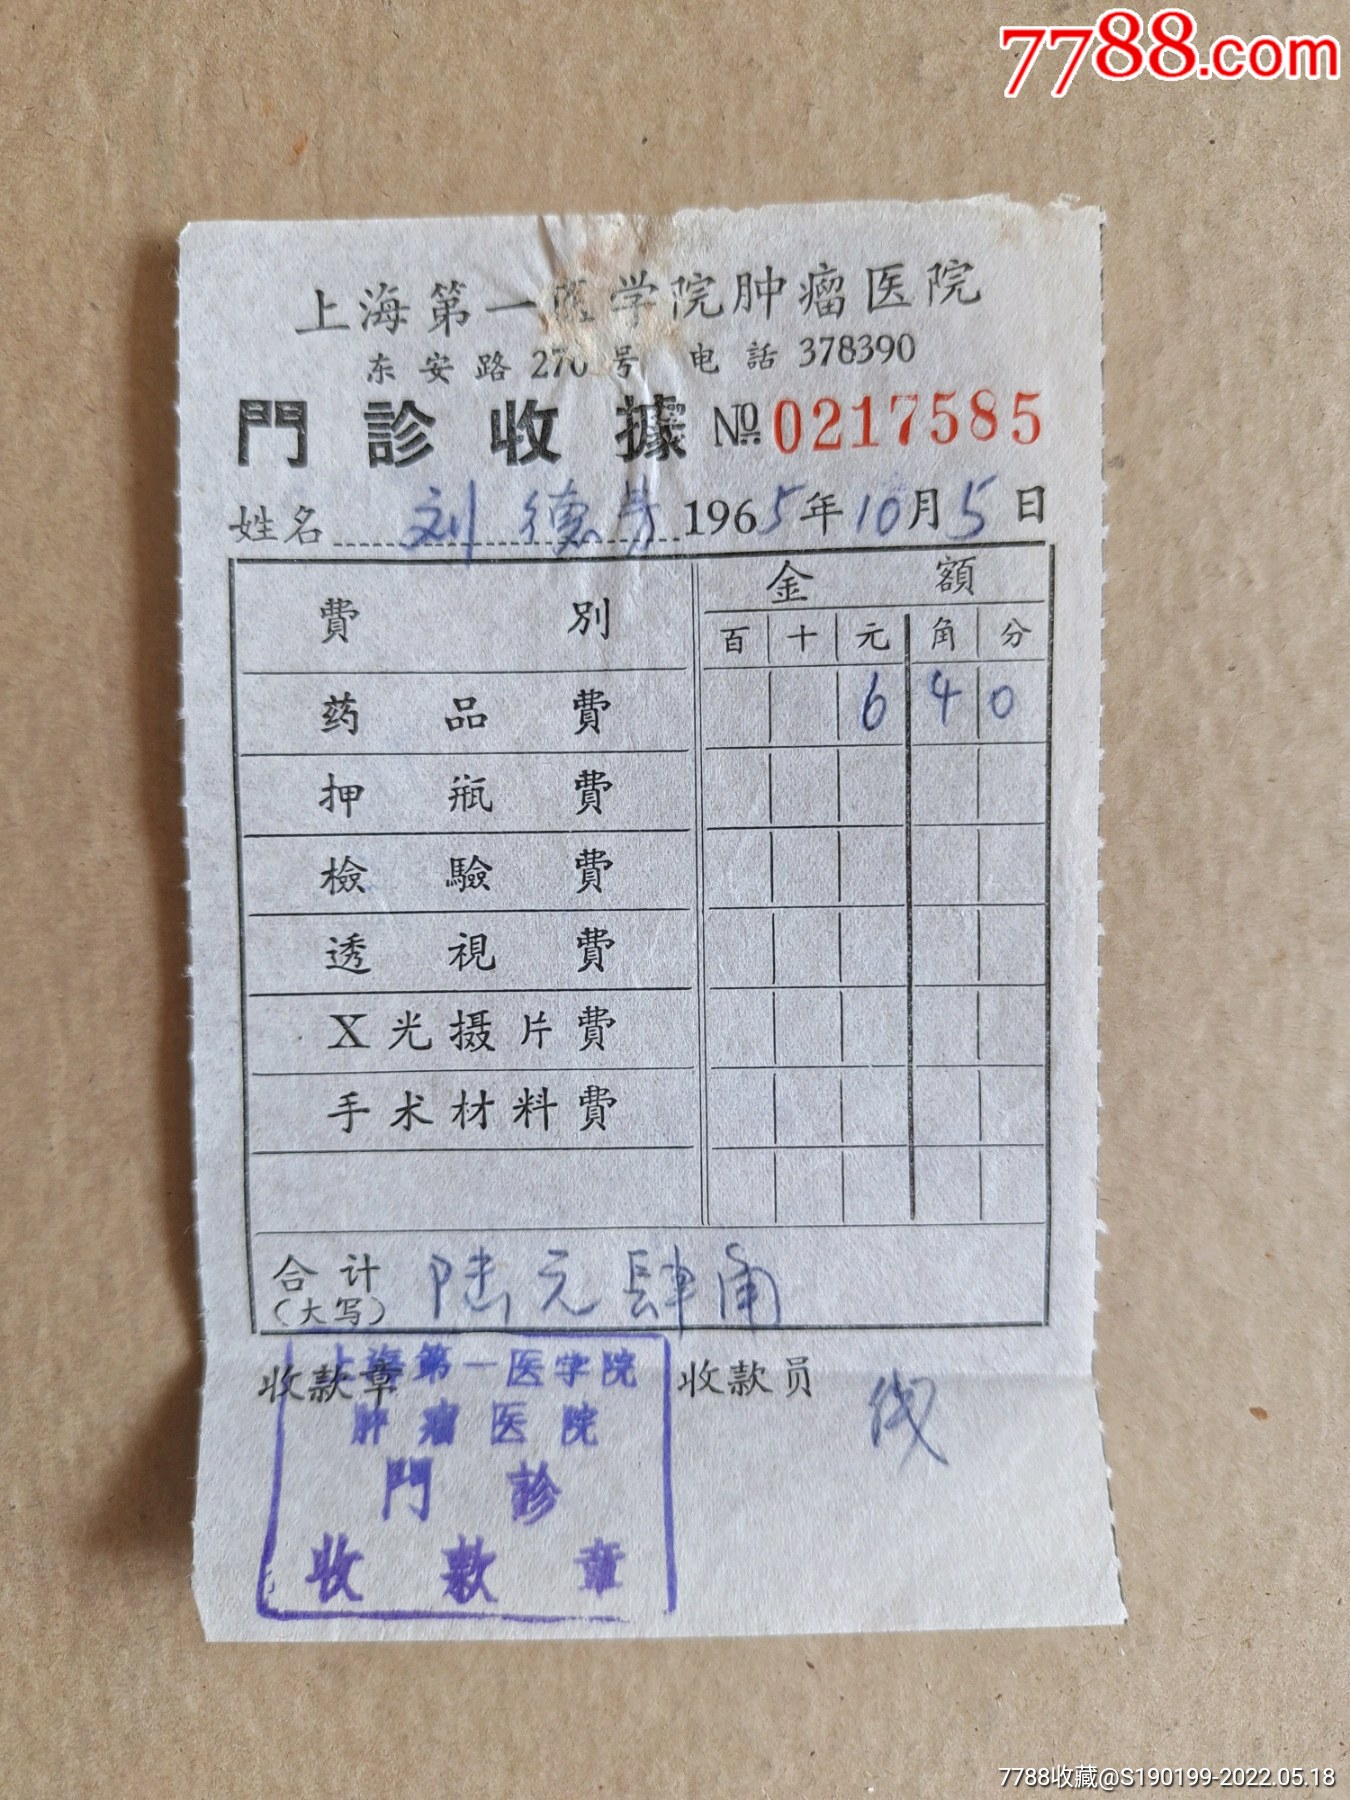 7788.com
上海第一医学院肿瘤医院
东安路270号 电話378390
門診收據 №0217585
姓名 刘德芳 1965年10月5日
費別 金額
百 十 元 角 分
药品費 6 4 0
押瓶費
檢驗費
透視費
X光摄片費
手术材料費
合计 陆元肆角
(大写)
收款章 收款员
上海第一医学院
肿瘤医院
門診
收款章
7788收藏@S190199-2022.05.18